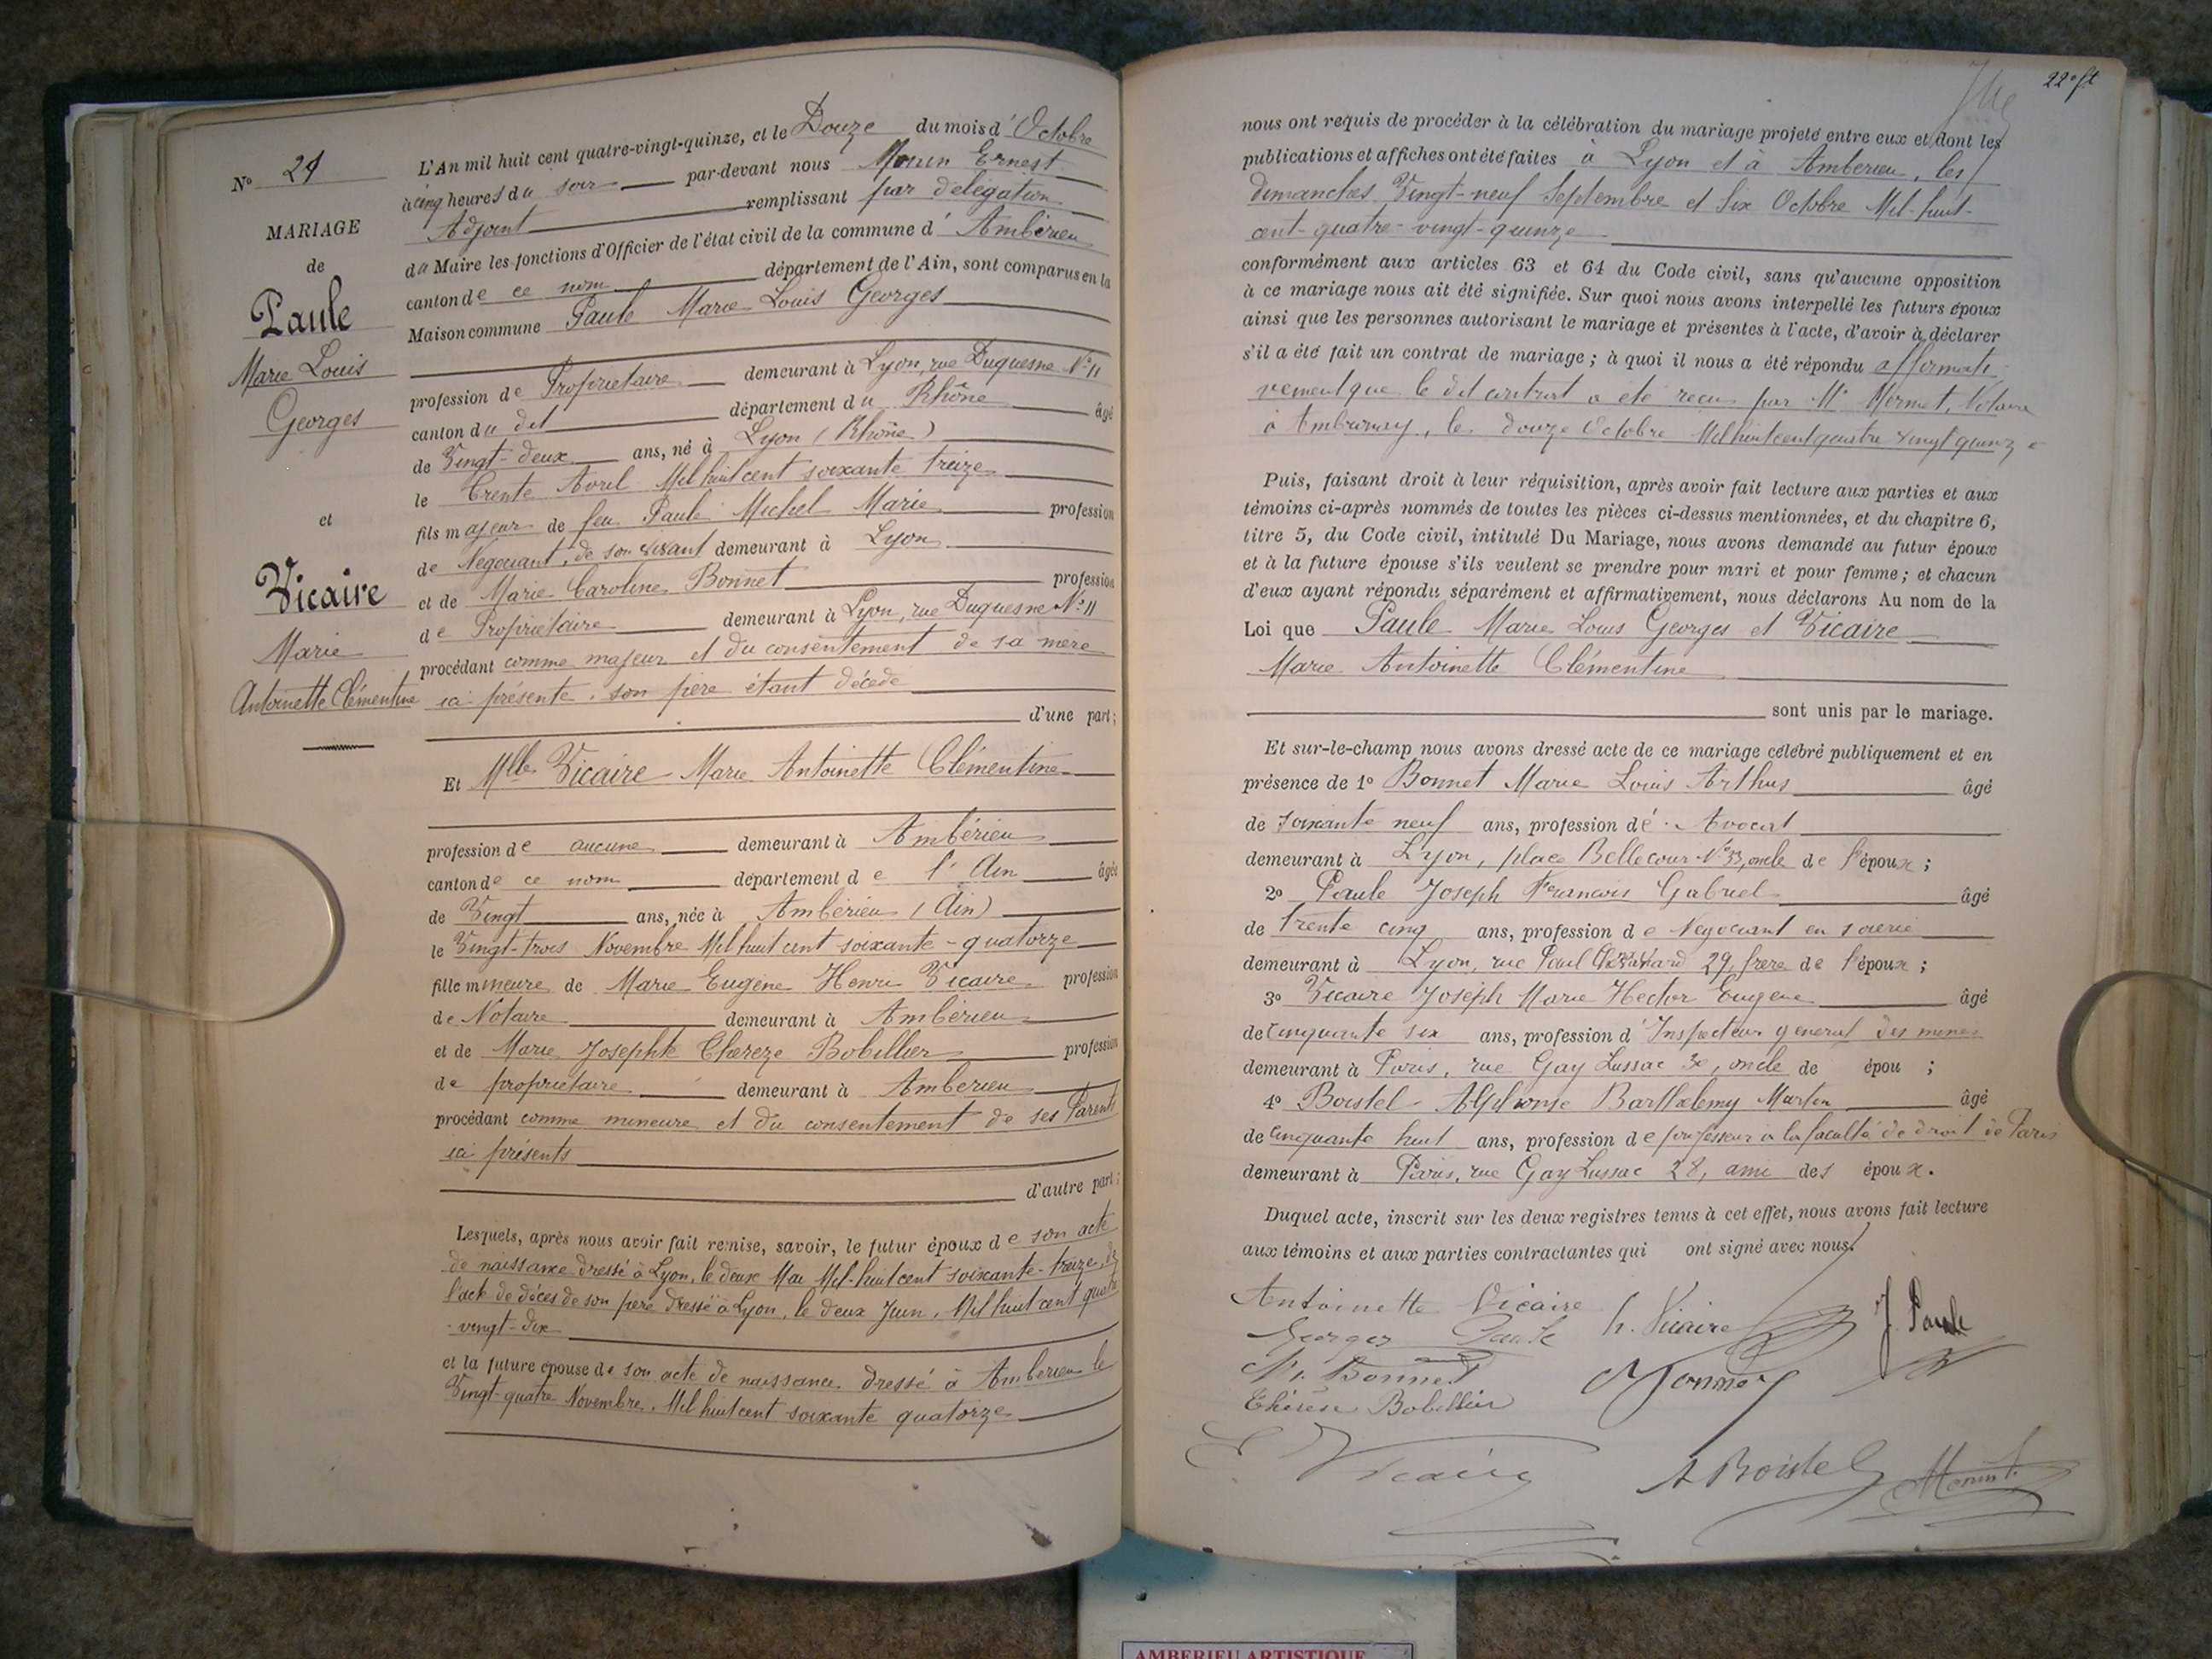 No 24
MARIAGE
de
Paule
Marie Louis
Georges
et
Vicaire
Marie
Antoinette Clémentine
L'An mil huit cent quatre-vingt-quinze, et le Douze du mois d'Octobre
à cinq heures du soir par-devant nous Ernest
Adjoint remplissant par délégation
du Maire les fonctions d'Officier de l'état civil de la commune d'Ambérieu
canton de ce nom département de l'Ain, sont comparus en la
Maison commune Paule Marie Louis Georges
profession de Propriétaire demeurant à Lyon, rue Duquesne No 11
canton du dit département du Rhône âgé
de Vingt-deux ans, né à Lyon (Rhône)
le Trente Avril Mil huit cent soixante treize
fils majeur de feu Paule Michel Marie profession
de Négociant, de son vivant demeurant à Lyon
et de Marie Caroline Bonnet profession
de Propriétaire demeurant à Lyon, rue Duquesne No 11
procédant comme majeur et du consentement de sa mère
ici présente, son père étant décédé
d'une part;
Et Mlle Vicaire Marie Antoinette Clémentine
profession de aucune demeurant à Ambérieu
canton de ce nom département de l'Ain âgée
de Vingt ans, née à Ambérieu (Ain)
le Vingt-trois Novembre Mil huit cent soixante-quatorze
fille mineure de Marie Eugène Henri Vicaire profession
de Notaire demeurant à Ambérieu
et de Marie Josephte Thérèze Bobillier profession
de propriétaire demeurant à Ambérieu
procédant comme mineure et du consentement de ses Parents
ici présents
d'autre part;
Lesquels, après nous avoir fait remise, savoir, le futur époux de son acte
de naissance dressé à Lyon, le deux Mai Mil-huit cent soixante-treize, de
l'acte de décès de son père dressé à Lyon, le deux Juin, Mil huit cent quatre
-vingt-dix
et la future épouse de son acte de naissance dressé à Ambérieu le
Vingt-quatre Novembre, Mil huit cent soixante quatorze
nous ont requis de procéder à la célébration du mariage projeté entre eux et dont les
publications et affiches ont été faites à Lyon et à Ambérieu, les
dimanches Vingt-neuf Septembre et Six Octobre Mil-huit-
cent-quatre-vingt-quinze
conformément aux articles 63 et 64 du Code civil, sans qu'aucune opposition
à ce mariage nous ait été signifiée. Sur quoi nous avons interpellé les futurs époux
ainsi que les personnes autorisant le mariage et présentes à l'acte, d'avoir à déclarer
s'il a été fait un contrat de mariage; à quoi il nous a été répondu affirmati-
vement que le dit contrat a été reçu par Me Mermet, Notaire
à Ambronay, le douze Octobre Mil huit cent quatre vingt quinze
Puis, faisant droit à leur réquisition, après avoir fait lecture aux parties et aux
témoins ci-après nommés de toutes les pièces ci-dessus mentionnées, et du chapitre 6,
titre 5, du Code civil, intitulé Du Mariage, nous avons demandé au futur époux
et à la future épouse s'ils veulent se prendre pour mari et pour femme; et chacun
d'eux ayant répondu séparément et affirmativement, nous déclarons Au nom de la
Loi que Paule Marie Louis Georges et Vicaire
Marie Antoinette Clémentine
sont unis par le mariage.
Et sur-le-champ nous avons dressé acte de ce mariage célébré publiquement et en
présence de 1o Bonnet Marie Louis Arthus âgé
de soixante neuf ans, profession d'Avocat
demeurant à Lyon, place Bellecour No 33, oncle de l'époux;
2o Paule Joseph François Gabriel âgé
de trente cinq ans, profession de Négociant en soierie
demeurant à Lyon, rue Paul 29, frère de l'époux;
3o Vicaire Joseph Marie Hector Eugène âgé
de Cinquante six ans, profession d'Inspecteur général des mines
demeurant à Paris, rue Gay Lussac 30, oncle de épou ;
4o Boistel Alphonse Barthélemy Martin âgé
de Cinquante huit ans, profession de professeur à la faculté de droit de Paris
demeurant à Paris, rue Gay Lussac 28, ami des époux.
Duquel acte, inscrit sur les deux registres tenus à cet effet, nous avons fait lecture
aux témoins et aux parties contractantes qui ont signé avec nous.
Antoinette Vicaire h. Vicaire J. Paule
Georges Paule
M. Bonnet
Thérèse Bobillier
E Vicaire
A Boistel
AMBERIEU ARTISTIQUE